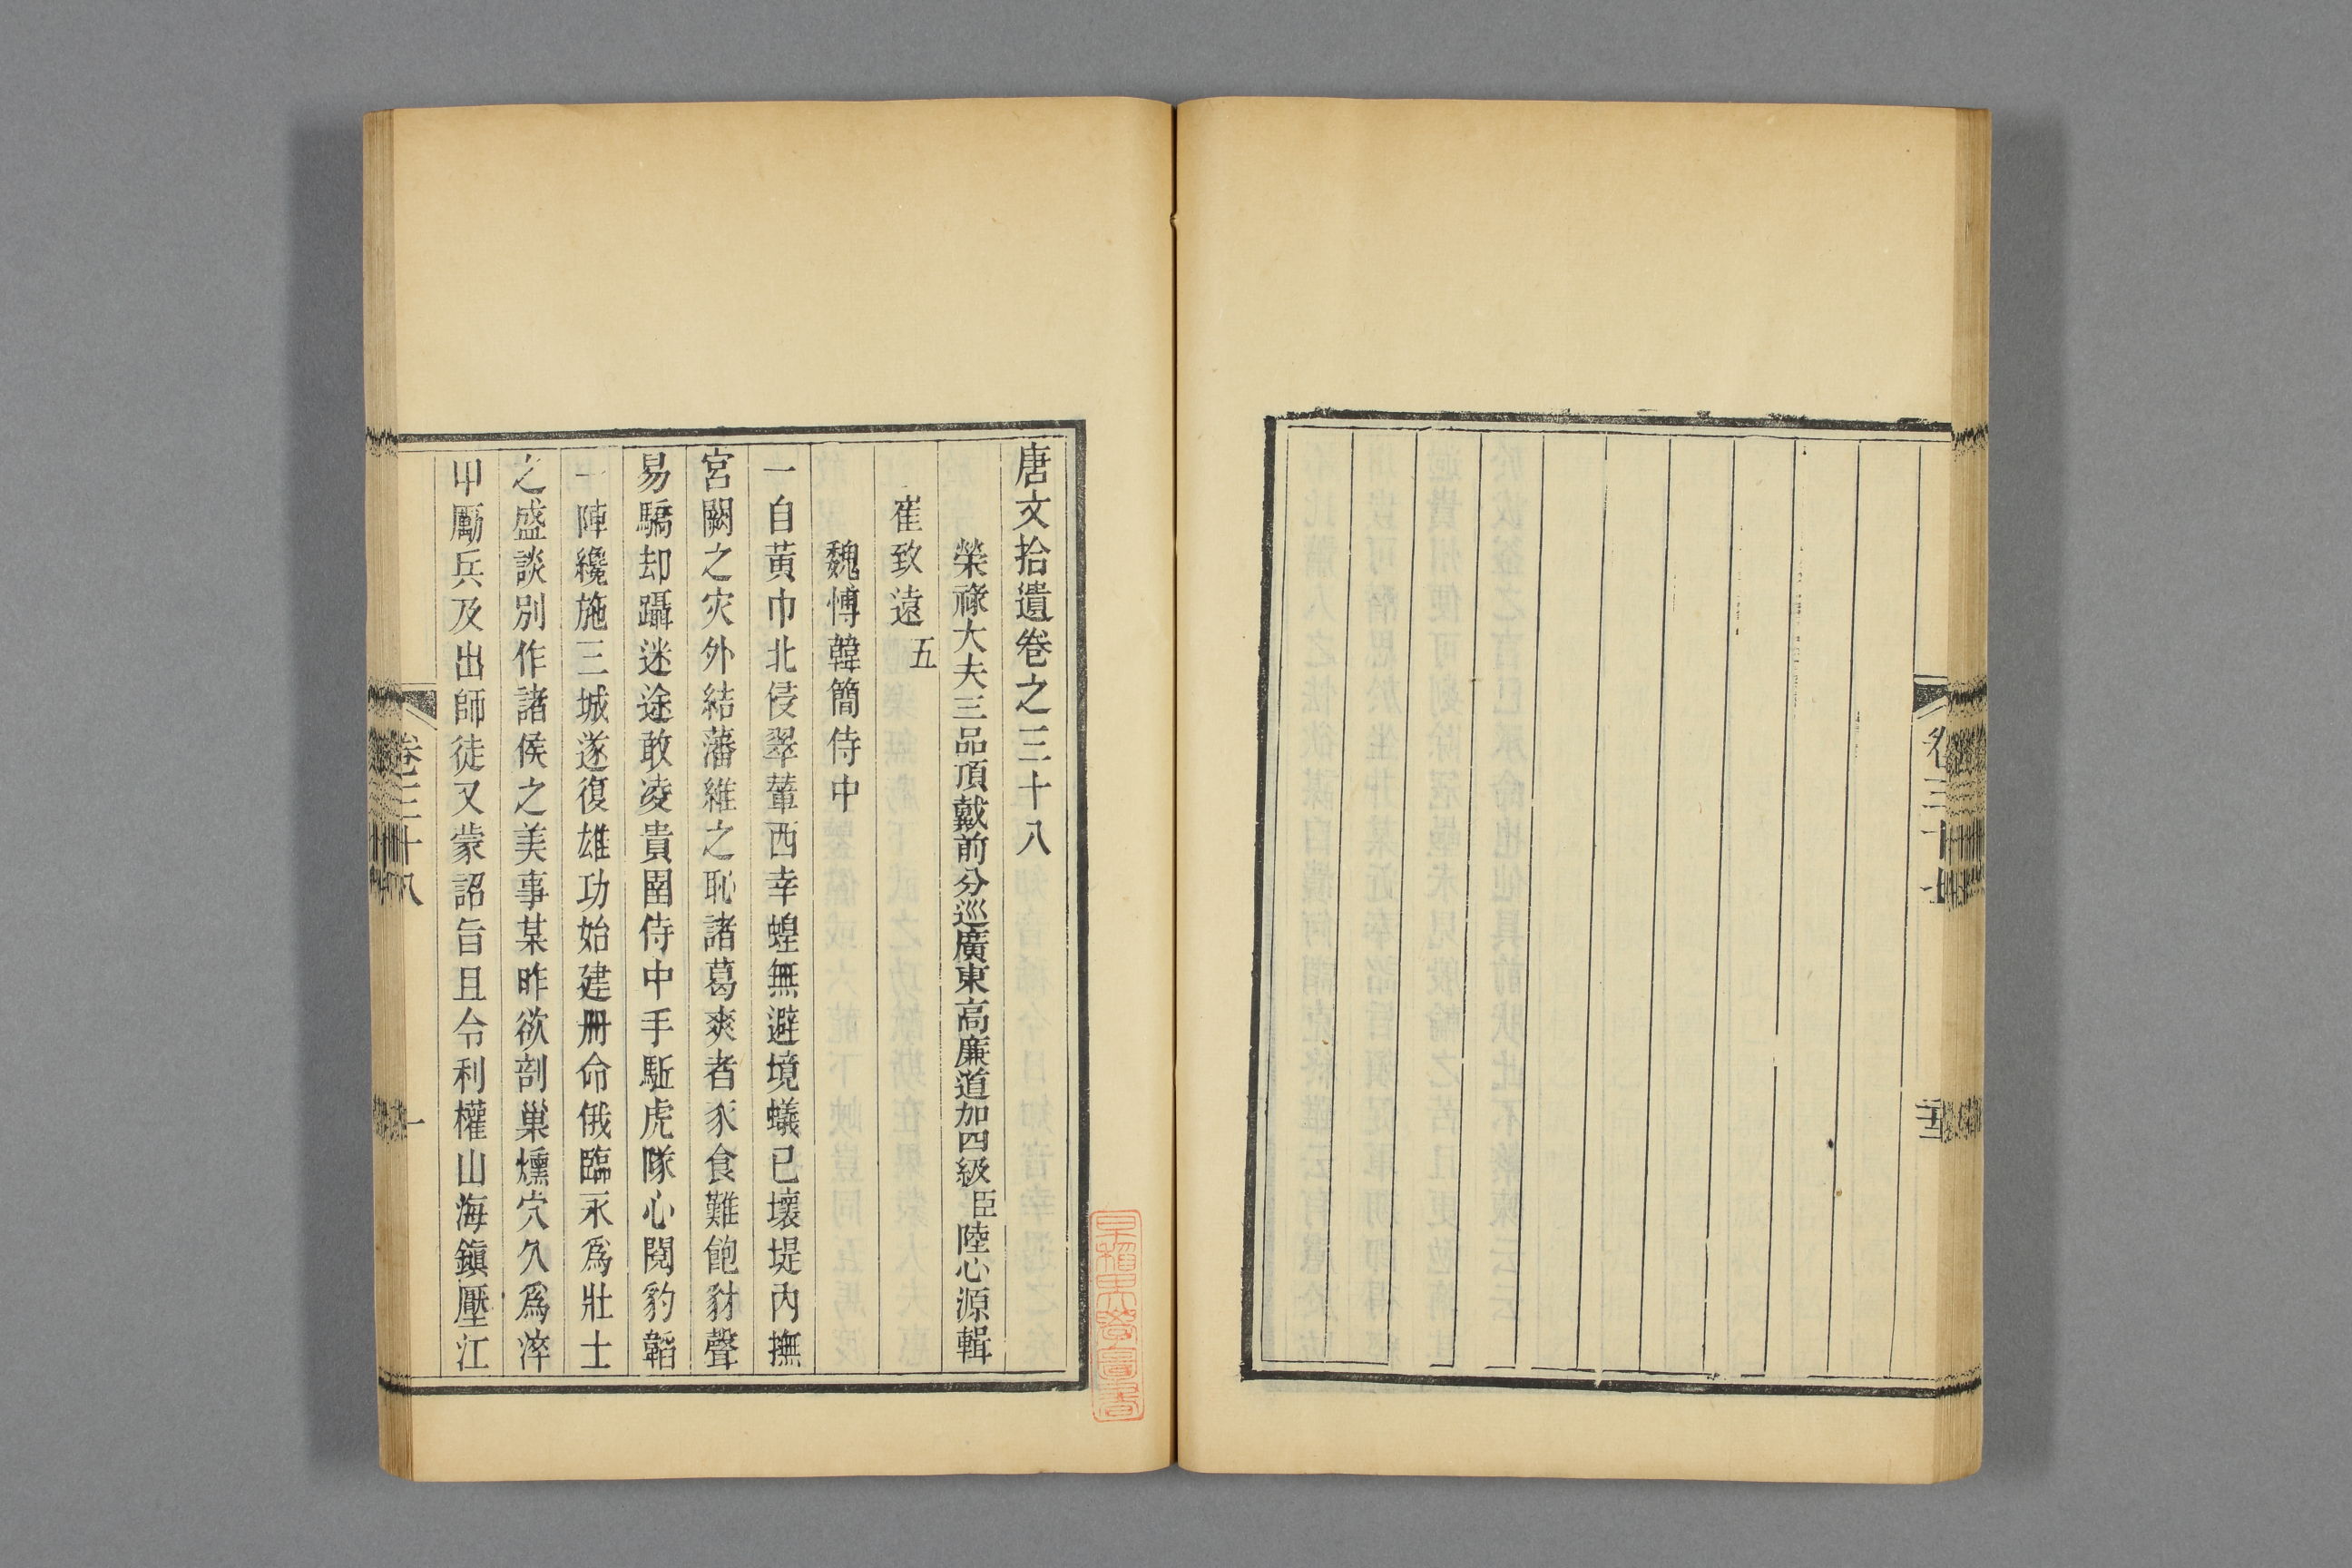 卷三十七
二十二
唐文拾遺卷之三十八
榮祿大夫三品頂戴前分巡廣東高廉道加四級臣陸心源輯
崔致遠五
魏博韓簡侍中
一自黃巾北侵翠輦西幸蝗無避境蟻已壞堤內撫
宮闕之灾外結藩維之恥諸葛爽者豕食難飽豺聲
易驕却躡迷途敢凌貴圉侍中手駈虎隊心閱豹韜
一陣纔施三城遂復雄功始建冊命俄臨永爲壯士
之盛談別作諸侯之美事某昨欲剖巢燻穴久爲淬
甲勵兵及出師徒又蒙詔旨且令利權山海鎭壓江
卷三十八
一